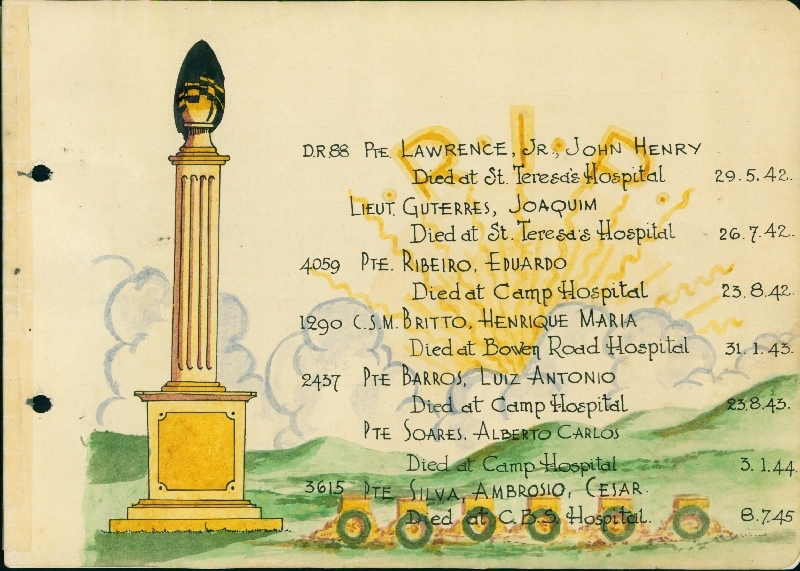 R.I.P
D.R.88 PTE. LAWRENCE, JR., JOHN HENRY
Died at St. Teresa's Hospital 29.5.42.
LIEUT. GUTERRES, JOAQUIM
Died at St. Teresa's Hospital 26.7.42.
4059 PTE. RIBEIRO, EDUARDO
Died at Camp Hospital 23.8.42.
1290 C.S.M. BRITTO, HENRIQUE MARIA
Died at Bowen Road Hospital 31.1.43.
2437 PTE BARROS, LUIZ ANTONIO
Died at Camp Hospital 23.8.43.
PTE SOARES, ALBERTO CARLOS
Died at Camp Hospital 3.1.44.
3615 PTE SILVA, AMBROSIO, CESAR.
Died at C.B.S. Hospital. 8.7.45